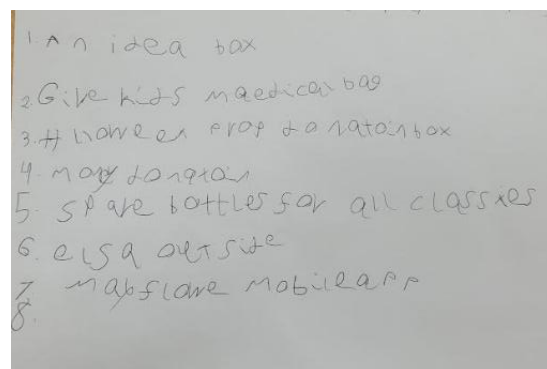 1. An idea box
2. Give kids maedical bag
3. Hlloween prop donatoin box
4. mony donatoin
5. spare bottles for all classies
6. elsa outsite
7. mobile app
8.